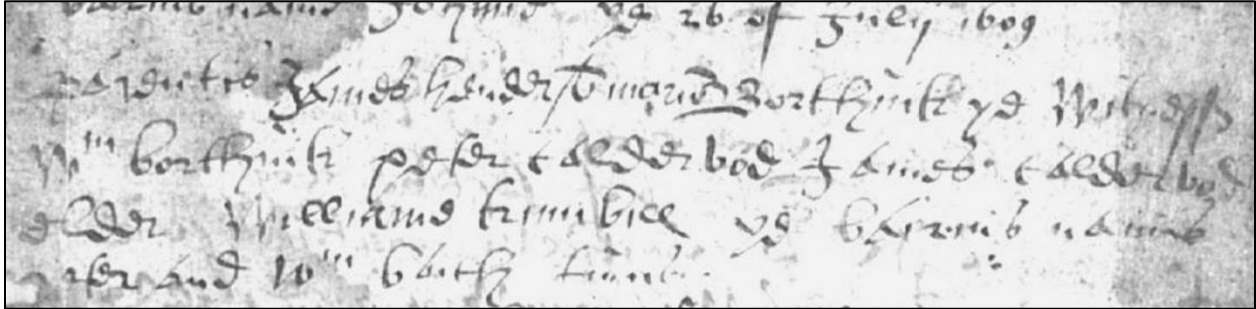 bairnis name Johnne ye 26 of July 1609
parentis James Henderson marion Borthuik ye Witness
Wm borthuik peter caldervod James caldervod
elder Williame trumbill ye bairnis namis
peter and Wm baith twins